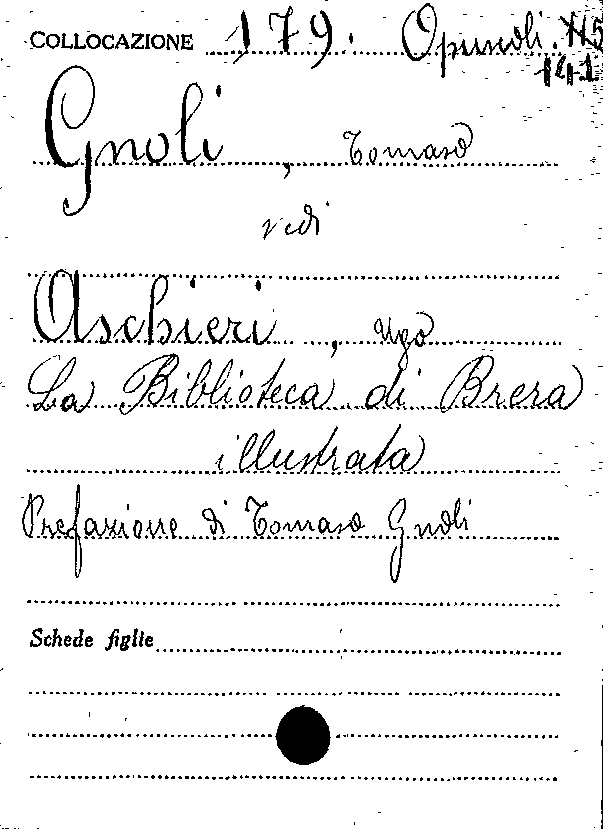 COLLOCAZIONE 179. Opuscoli.
141
Gnoli, Tomaso
vedi
Aschieri, Ugo
La Biblioteca di Brera
illustrata
Prefazione di Tomaso Gnoli
Schede figlie